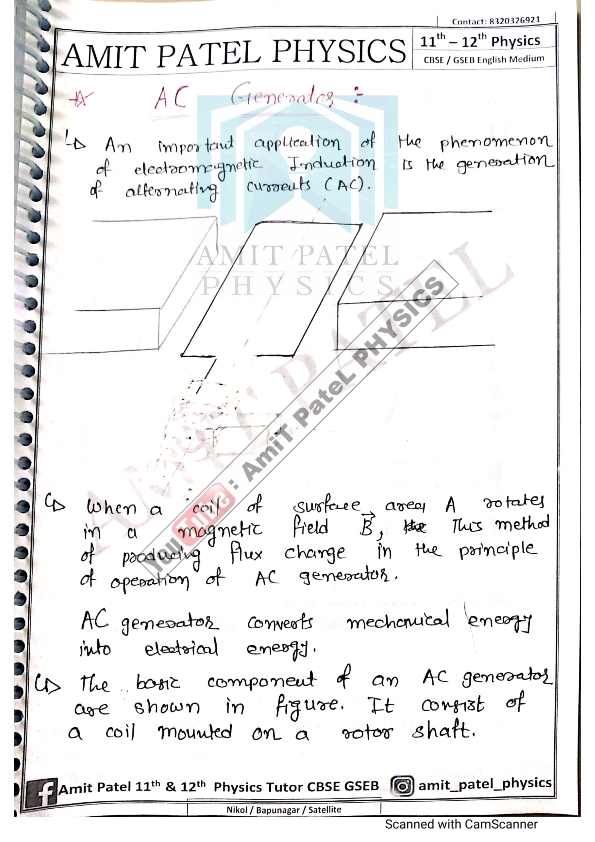 Contact: 8320326921
AMIT PATEL PHYSICS
11th – 12th Physics
CBSE / GSEB English Medium
AC Generator :-
An important application of the phenomenon
of electromagnetic Induction is the generation
of alternating currents (AC).
AMIT PATEL
PHYSICS
AMIT PATEL
YouTube : AmiT PateL PHYSICS
When a coil of surface area A rotates
in a magnetic field B, This method
of producing flux change in the principle
of operation of AC generator.
AC generator converts mechanical energy
into electrical energy.
The basic component of an AC generator
are shown in figure. It consist of
a coil mounted on a rotor shaft.
Amit Patel 11th & 12th Physics Tutor CBSE GSEB
amit_patel_physics
Nikol / Bapunagar / Satellite
Scanned with CamScanner